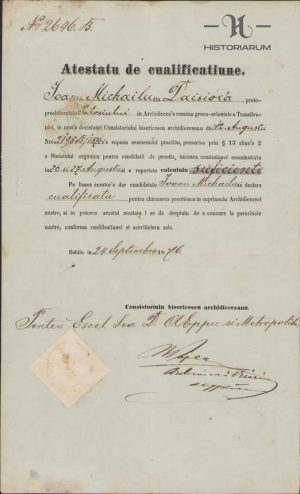 No 2646. B.
HISTORIARUM
Atestatu de cualificatiune.
Ioanu Michailu din Daisióra proto-
presbiteratului in Archidieces'a româna greco-orientale a Transilva-
niei, in urm'a decisiunei Consistoriului bisericescu archidiecesanu de 12 Augustu
Nr. supusa esamenului prescisu, prescrisu prin § 13 aline'a 2
a Statutului organicu pentru candidatii de preotia, inaintea comissiunei esaminatórie
in 26 si 27 Augustu a reportatu calculu suficiente
Pe bas'a acestor'a dar candidatulu Ioanu Michailu se declara
cualificatu pentru chiamarea preotiésca in cuprinsulu Archidiecesei
nóstre, si in poterea acestui atestatu i se dă dreptulu de a concure la parochiele
nóstre, conformu cualificatiunei si serviteloru sale.
Sabiiu in 24 Septembre 1876.
Consistoriulu bisericescu archidiecesanu.
Pentru Escel. Sea D. AEppu si Metropolitu